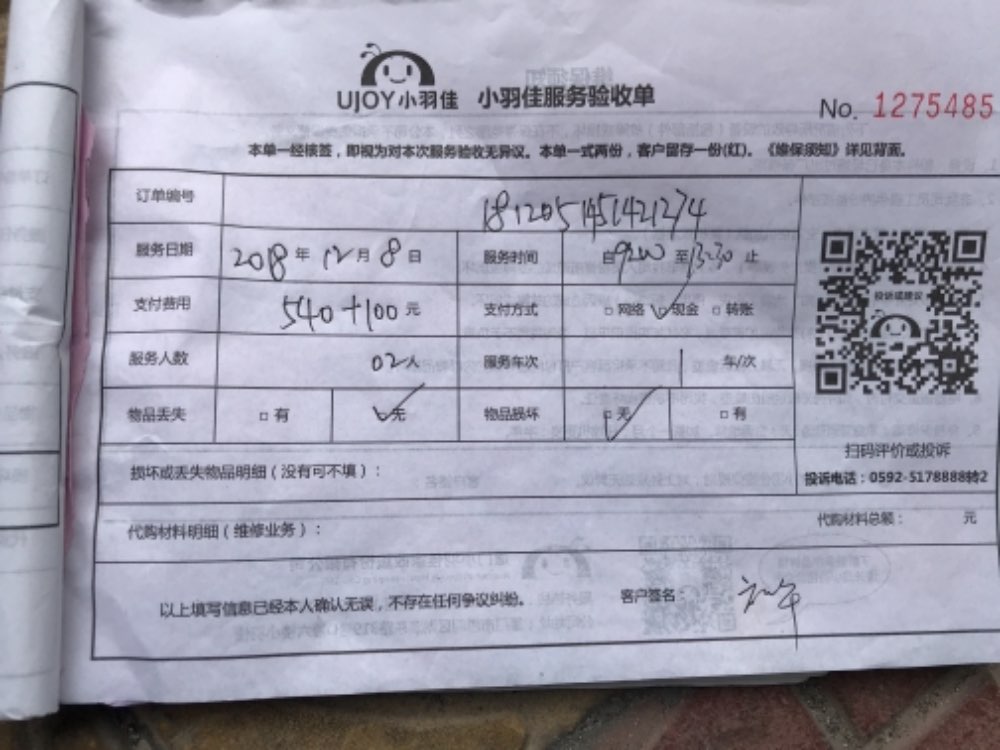 UJOY小羽佳 小羽佳服务验收单
No. 1275485
本单一经核签，即视为对本次服务验收无异议。本单一式两份，客户留存一份(红)。《维保须知》详见背面。
订单编号
服务日期 2018年 12月 8日 服务时间 自9:00至13:30止
支付费用 540+100元 支付方式 □网络 ☑现金 □转账
服务人数 02人 服务车次 1 车/次
物品丢失 □有 ☑无 物品损坏 ☑无 □有
投诉或建议
扫码评价或投诉
投诉电话：0592-5178888转2
损坏或丢失物品明细（没有可不填）：
代购材料明细（维修业务）： 代购材料总额： 元
以上填写信息已经本人确认无误，不存在任何争议纠纷。 客户签名：